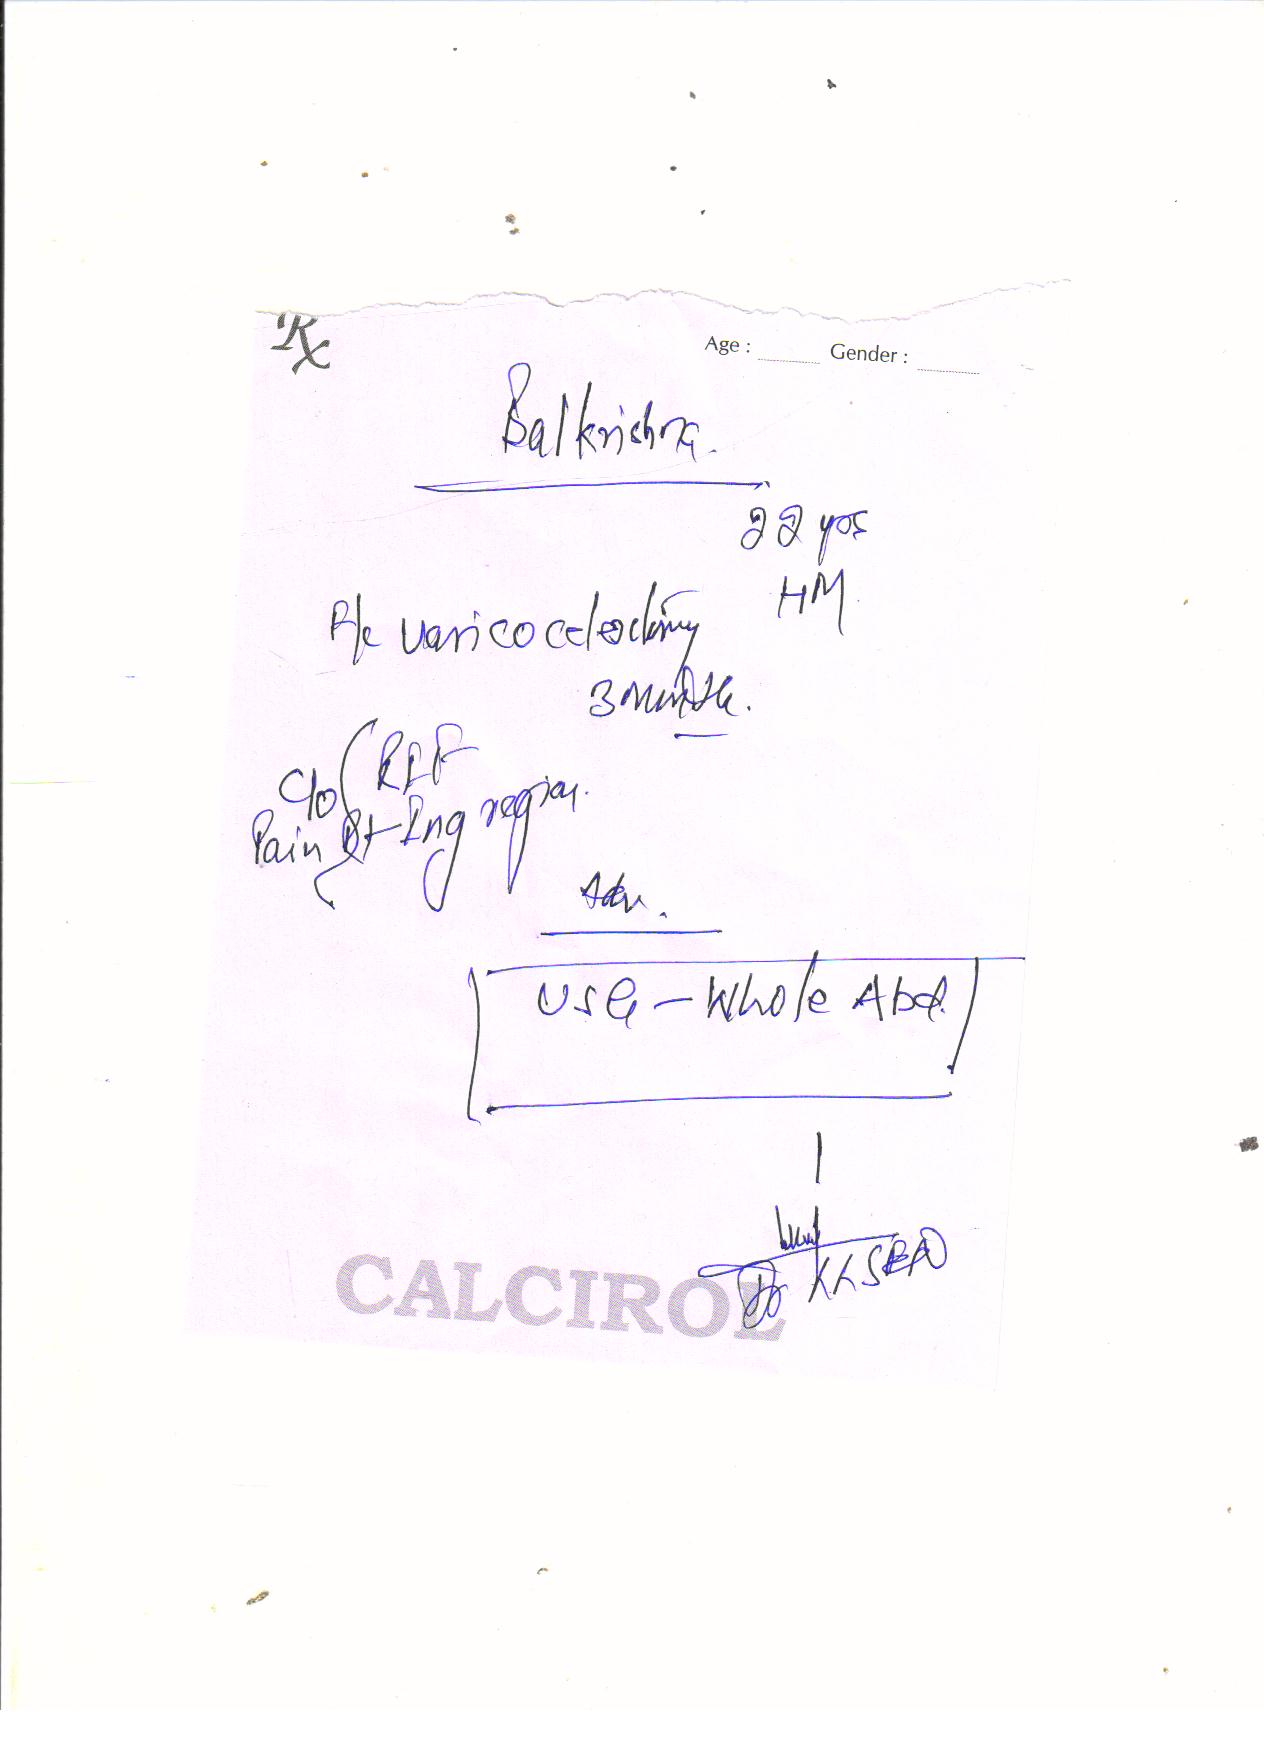 Rx
Age : Gender :
Balkrishna.
22 yrs
HM
varicocelectomy
3 Month.
C/o RIF
Pain Rt Ing region.
Adv.
USG - Whole Abd.
Dr
CALCIROL